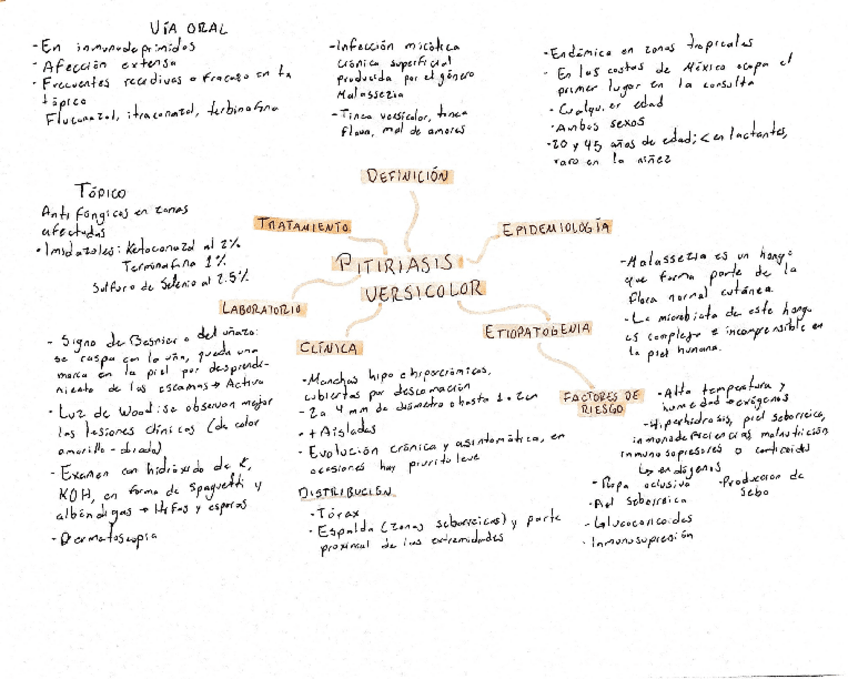 VÍA ORAL
- En inmunodeprimidos
- Afección extensa
- Frecuentes recidivas o fracaso en tx
tópico
Fluconazol, itraconazol, terbinafina
- Infección micótica
crónica superficial
producida por el género
Malassezia
- Tinea versicolor, tinea
flava, mal de amores
- Endémica en zonas tropicales
- En las costas de México ocupa el
primer lugar en la consulta
- Cualquier edad
- Ambos sexos
- 20 y 45 años de edad; < en lactantes,
raro en la niñez
DEFINICIÓN
TÓPICO
Antifúngicos en zonas
afectadas
• Imidazoles: Ketoconazol al 2%
Terbinafina 1%
Sulfuro de Selenio al 2.5%
TRATAMIENTO
EPIDEMIOLOGÍA
PITIRIASIS
VERSICOLOR
LABORATORIO
CLÍNICA
ETIOPATOGENIA
- Malassezia es un hongo
que forma parte de la
flora normal cutánea.
- La microbiota de este hongo
es compleja e incomprensible en
la piel humana.
- Signo de Besnier o del uñazo:
se raspa con la uña, queda una
marca en la piel por desprendi-
miento de las escamas → Activa
- Luz de Wood: se observan mejor
las lesiones clínicas (de color
amarillo - dorado)
- Examen con hidróxido de K,
KOH, en forma de spaguetti y
albóndigas → Hifas y esporas
- Dermatoscopia
- Manchas hipo e hipercrómicas,
cubiertas por descamación
- 2 a 4 mm de diámetro o hasta 1 o 2 cm
- + Aisladas
- Evolución crónica y asintomática, en
ocasiones hay prurito leve
DISTRIBUCIÓN
- Tórax
- Espalda (zonas seborreicas) y parte
proximal de las extremidades
FACTORES DE
RIESGO
- Alta temperatura y
humedad → exógenos
- Hiperhidrosis, piel seborreica,
inmunodeficiencias, malnutrición
inmunosupresores o corticoides
↳ endógenos
- Ropa oclusiva
- Producción de
sebo
- Piel Seborreica
- Glucocorticoides
- Inmunosupresión